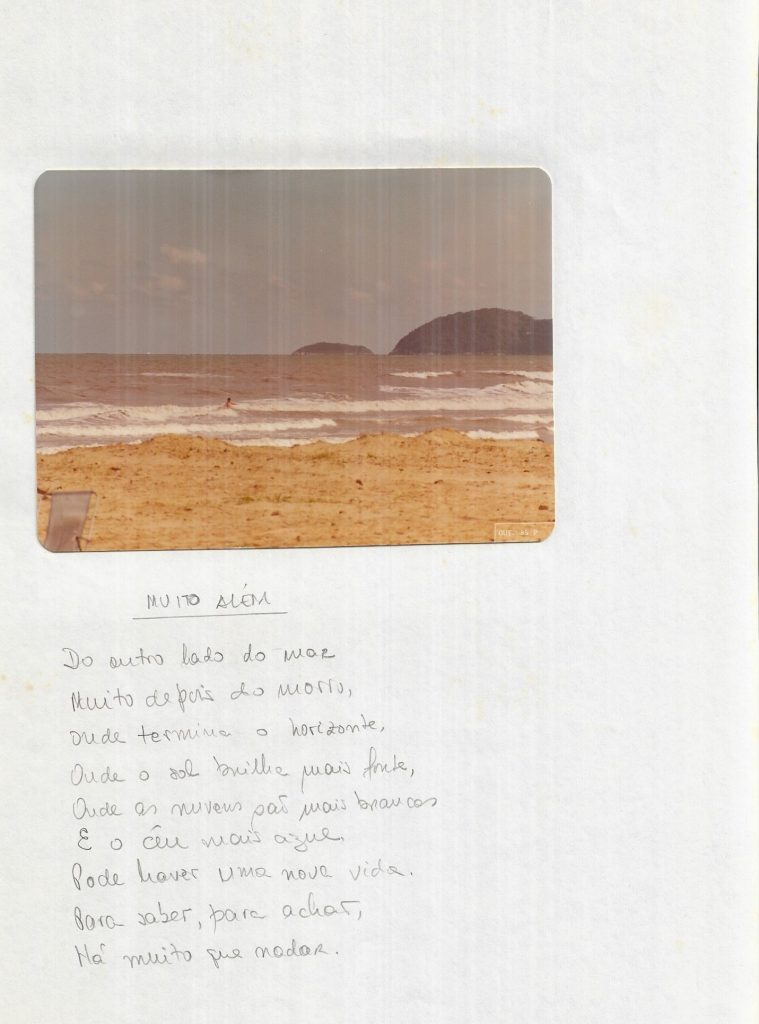 OUT. 85 P
MUITO ALÉM
Do outro lado do mar
Muito depois do morro,
onde termina o horizonte,
Onde o sol brilha mais forte,
Onde as nuvens são mais brancas
E o céu mais azul.
Pode haver uma nova vida.
Para saber, para achar,
Há muito que nadar.